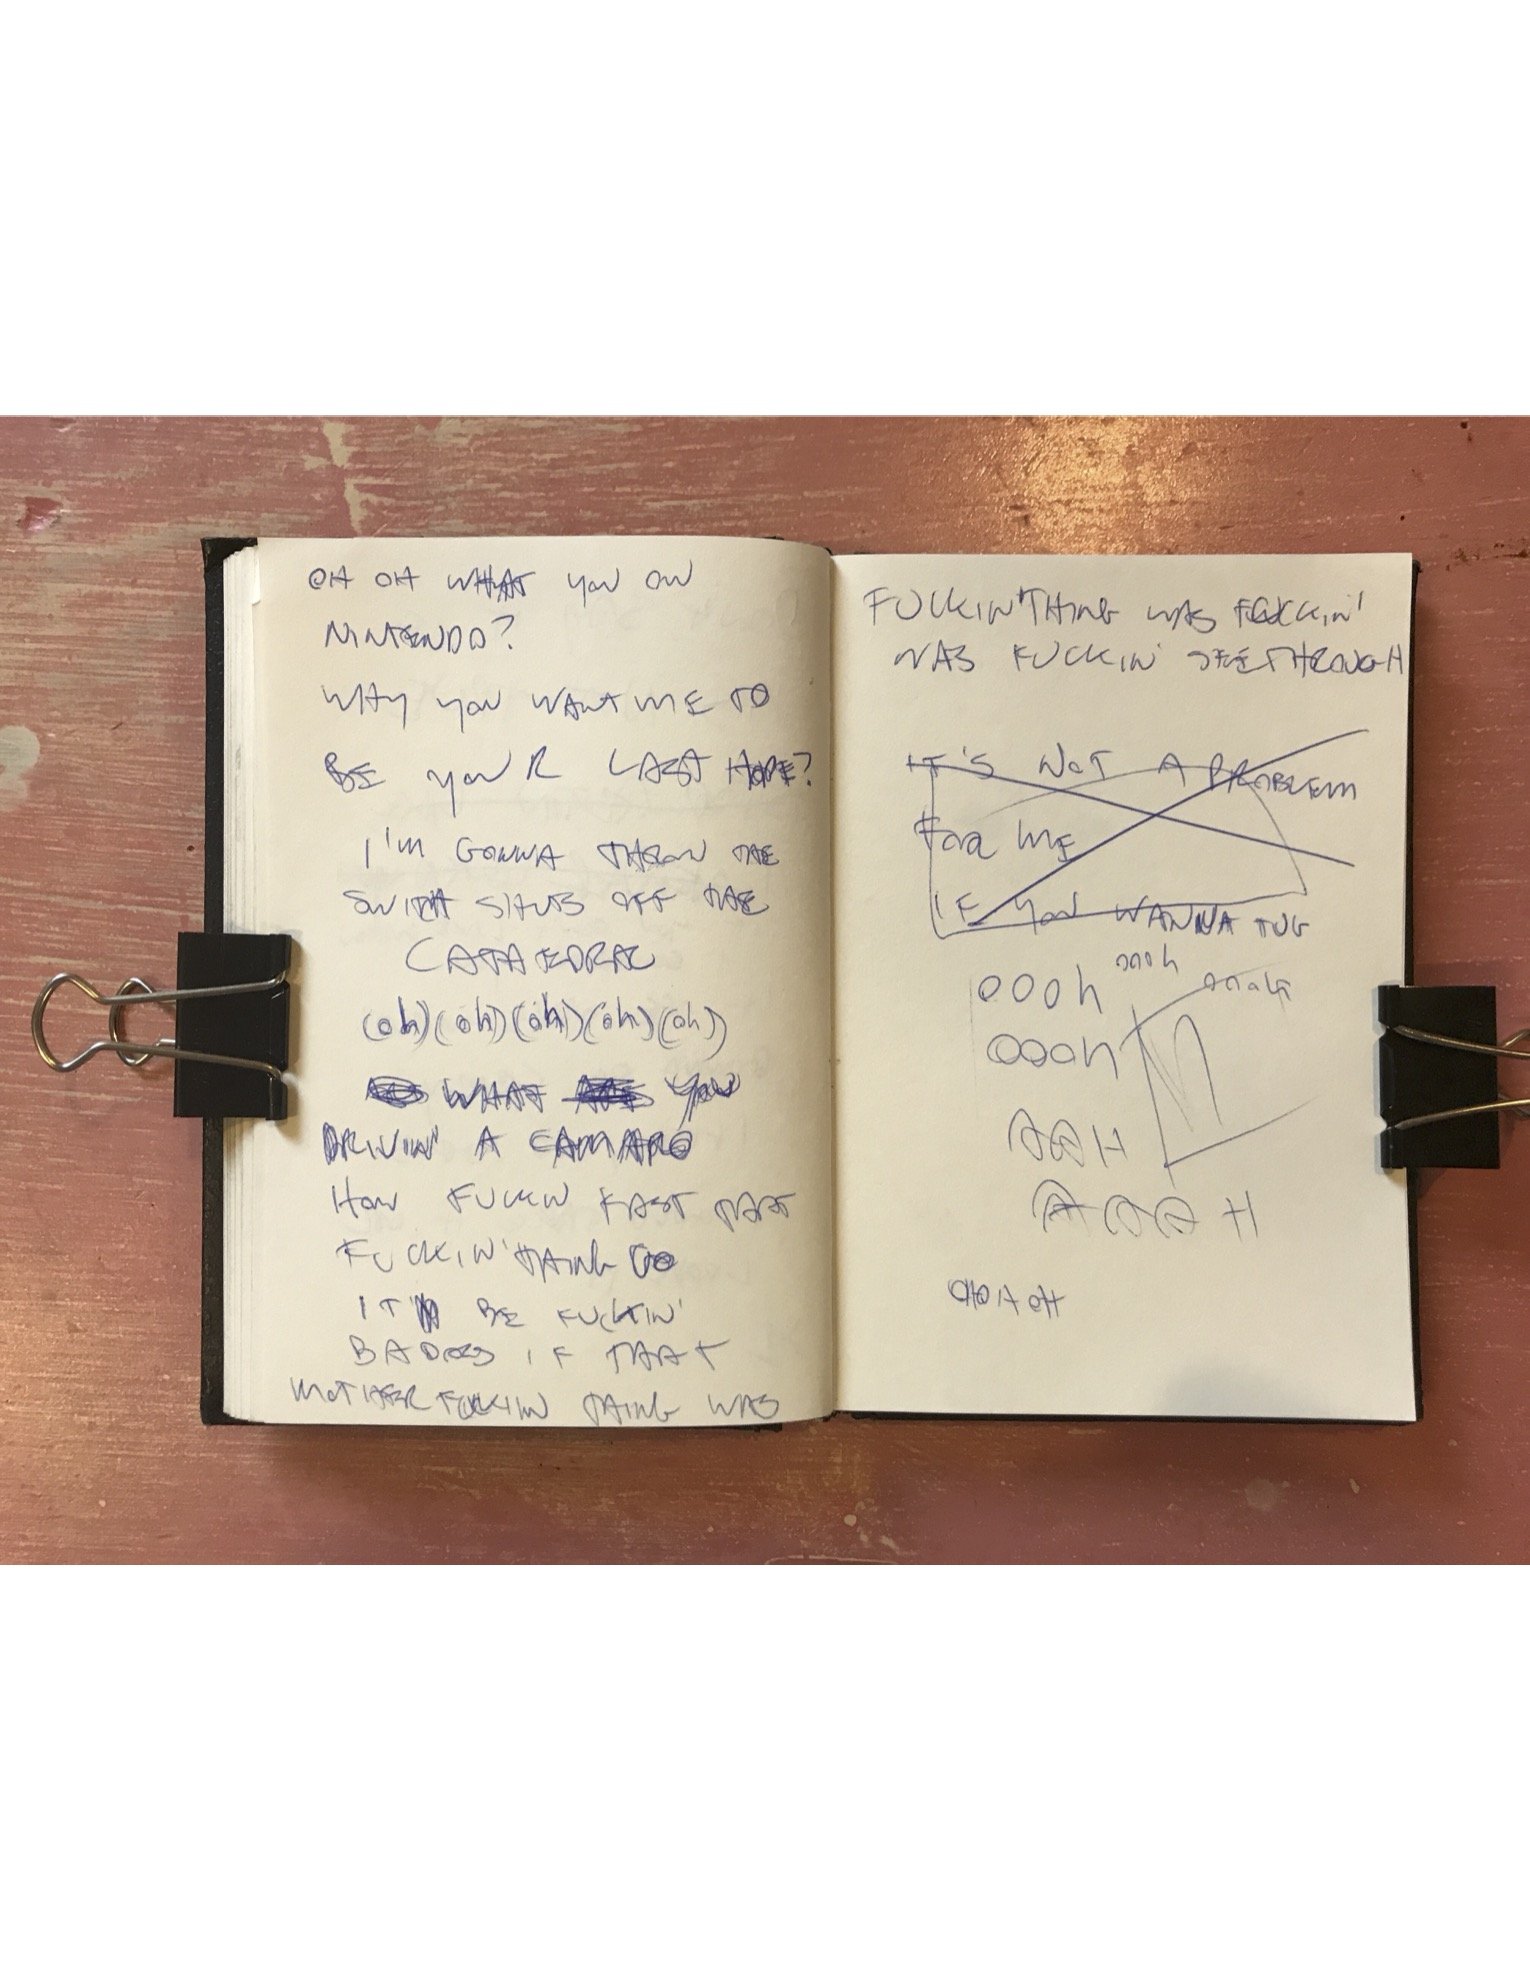 OH OH WHAT YOU ON
NINTENDO?
WHY YOU WANT ME TO
BE YOUR LAST HOPE?
I'M GONNA THROW THE
SWITH SHUTS OFF THE
CATHEDRAL
(oh) (oh) (oh) (oh) (oh)
WHAT YOU
DRIVIN' A CAMARO
HOW FUCKIN FAST THAT
FUCKIN' THING GO
IT'D BE FUCKIN'
BADASS IF THAT
MOTHERFUCKIN THING WAS
FUCKIN' THING WAS FUCKIN'
WAS FUCKIN' SEETHROUGH
IT'S NOT A PROBLEM
FOR ME
IF YOU WANNA TUG
oooh oooh
oooh
AAH
AAAAH